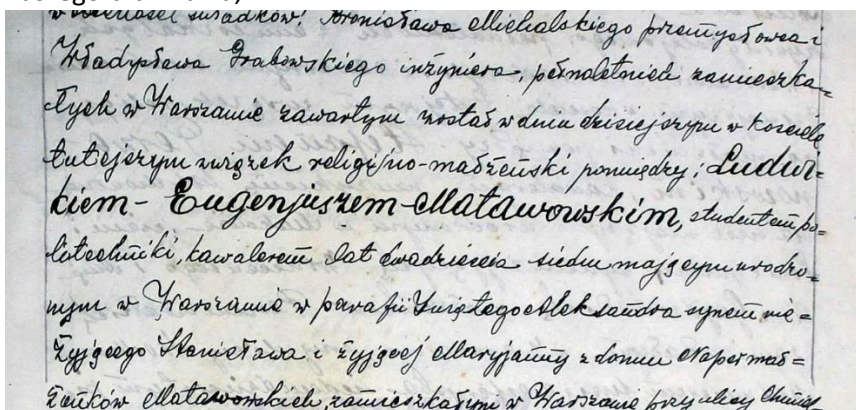 w obecności świadków: Bronisława Michalskiego przemysłowca i
Władysława Grabowskiego inżyniera, pełnoletnich zamieszka=
łych w Warszawie zawartym został w dniu dzisiejszym w kościele
tutejszym związek religijno-małżeński pomiędzy: Ludwi=
kiem-Eugenjuszem-Matawowskim, studentem po=
litechniki, kawalerem lat dwadzieścia siedm mającym urodzo=
nym w Warszawie w parafii Świętego Aleksandra synem nie=
żyjącego Stanisława i żyjącej Maryjanny z domu Naper mał=
żonków Matawowskich, zamieszkałym w Warszawie przy ulicy